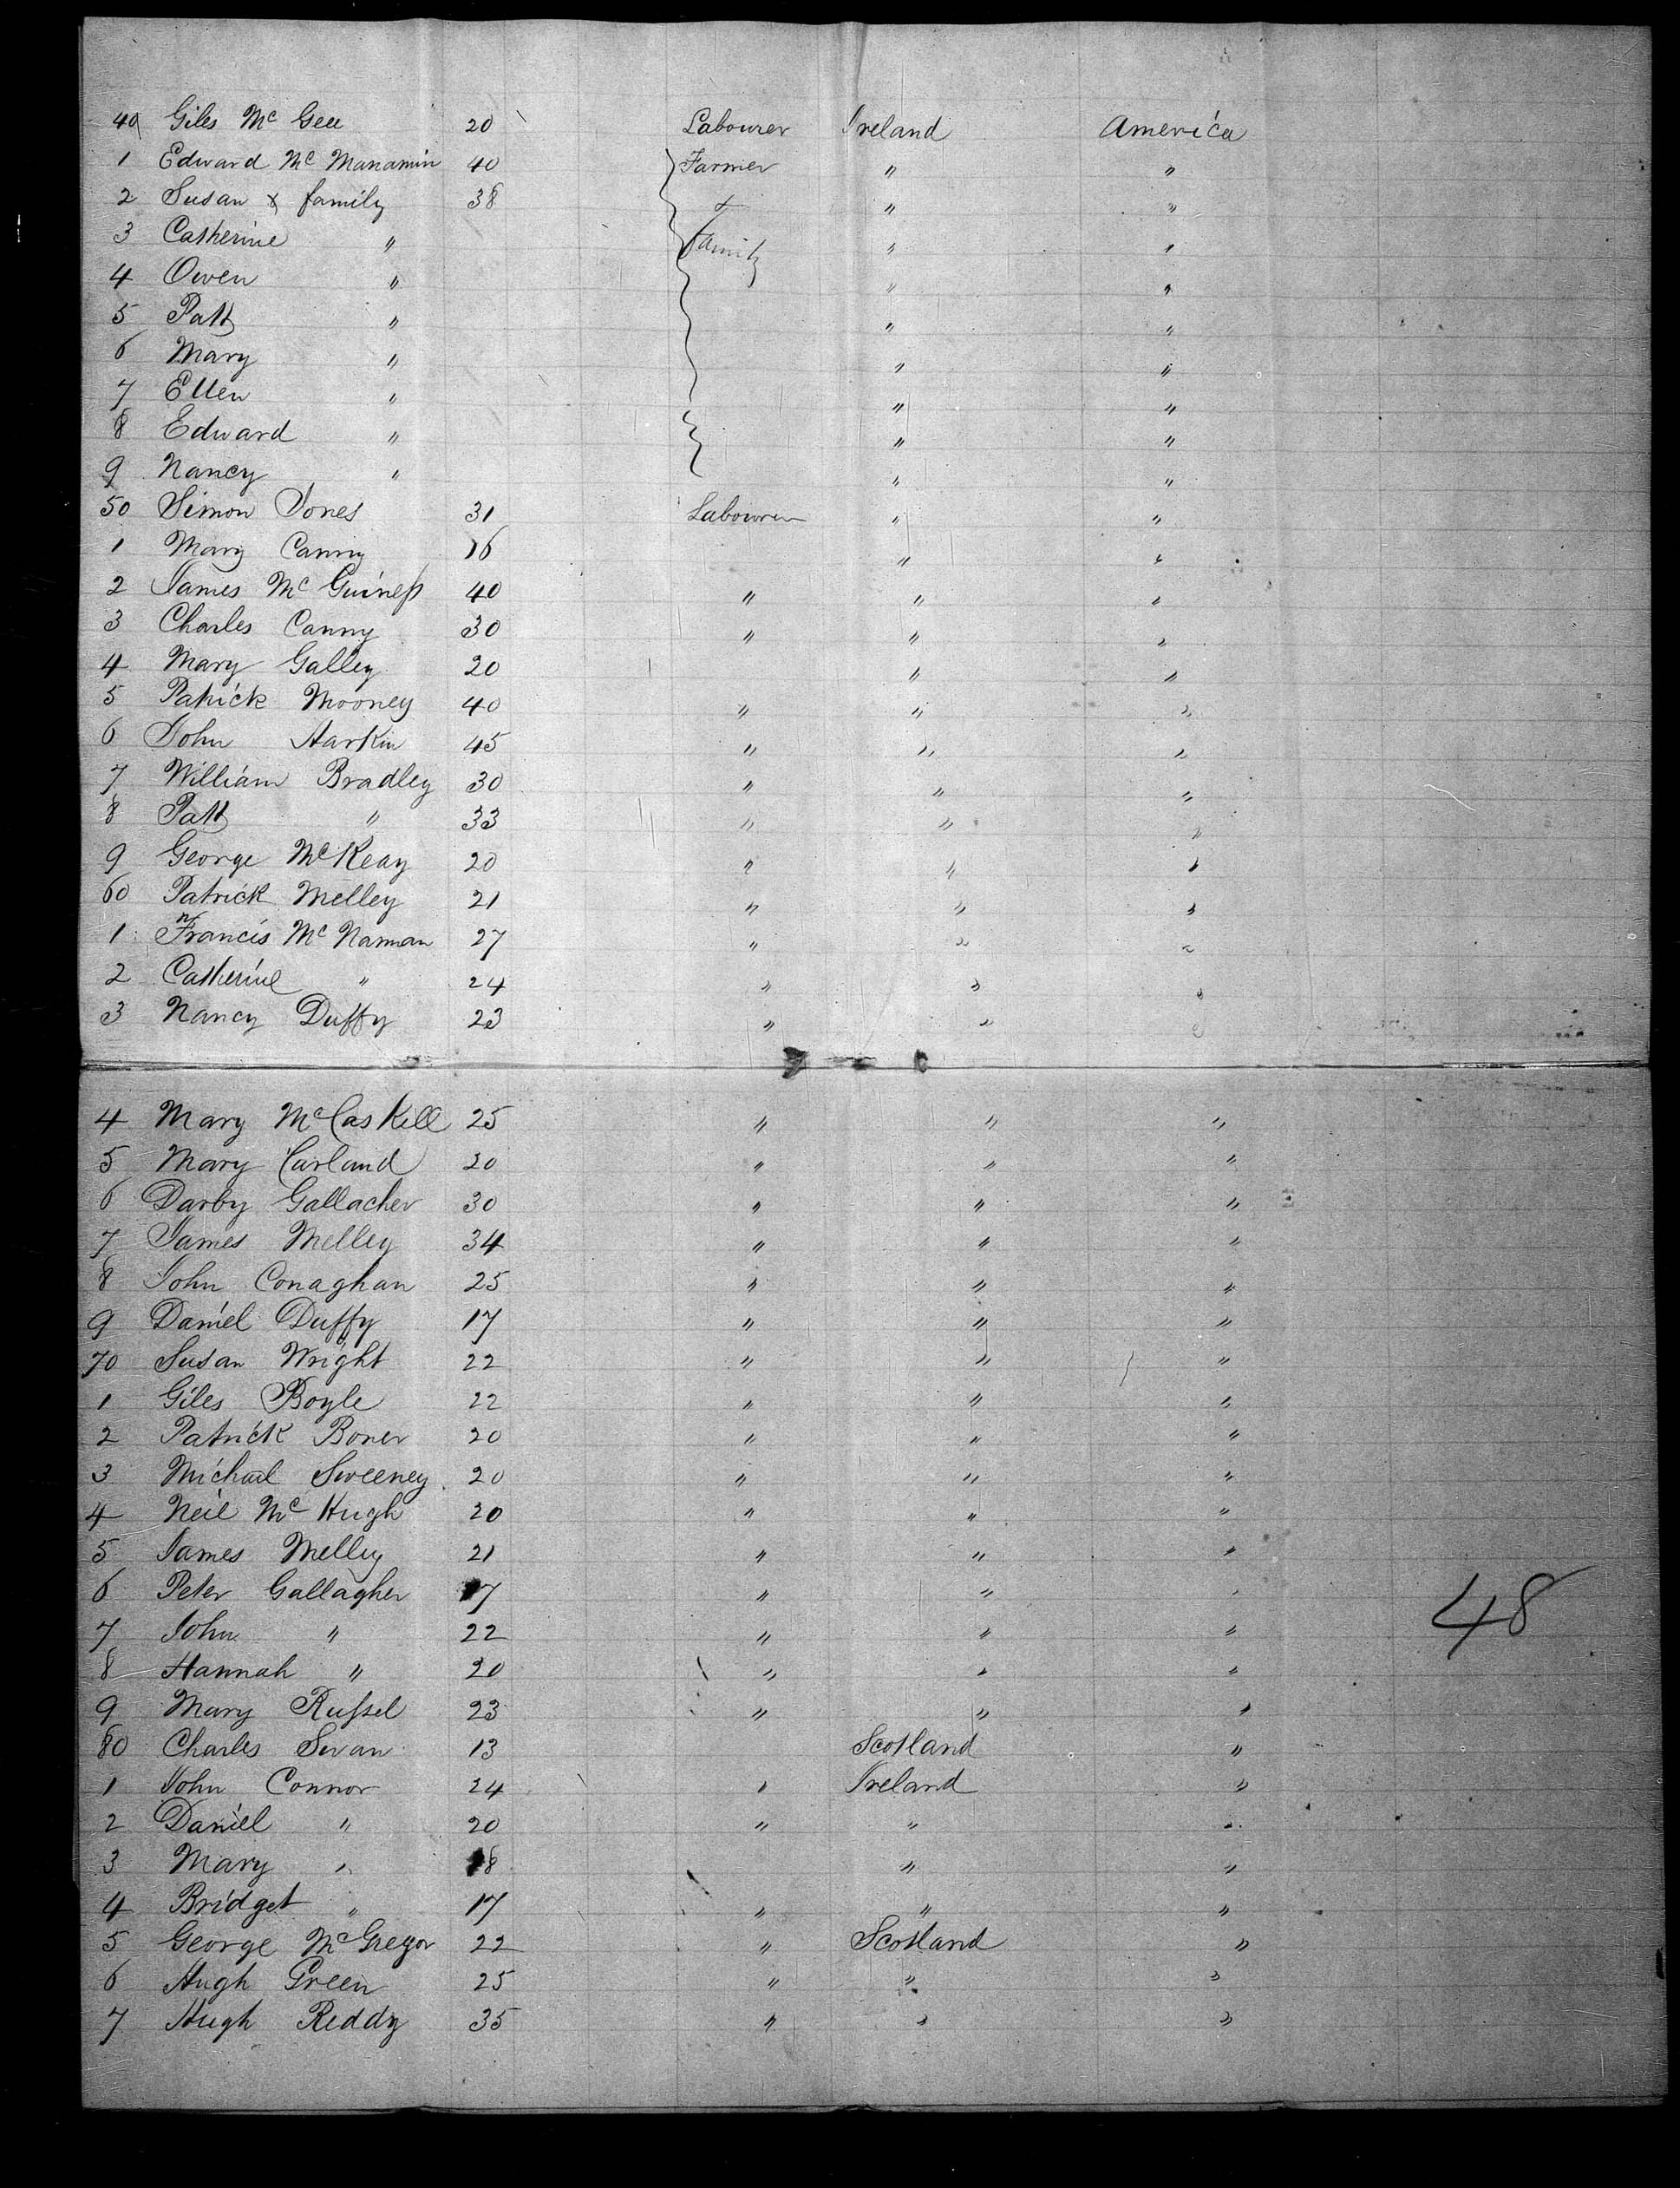 40 Giles Mc Gee 20 Labourer Ireland America
1 Edward Mc Manamin 40 Farmer " "
2 Susan & family 38 & " "
3 Catherine " family " "
4 Owen " " "
5 Patt " " "
6 Mary " " "
7 Ellen " " "
8 Edward " " "
9 Nancy " " "
50 Simon Jones 31 Labourer " "
1 Mary Canny 16 " "
2 James Mc Guiness 40 " " "
3 Charles Canny 30 " " "
4 Mary Galley 20 " "
5 Patrick Mooney 40 " " "
6 John Harkin 45 " " "
7 William Bradley 30 " " "
8 Patt " 33 " " "
9 George McKeay 20 " " "
60 Patrick Melley 21 " " "
1 Francis Mc Narman 27 " " "
2 Catherine " 24 " " "
3 Nancy Duffy 23 " " "
4 Mary McCaskell 25 " " "
5 Mary Carland 20 " " "
6 Darby Gallacher 30 " " "
7 James Melley 34 " " "
8 John Conaghan 25 " " "
9 Daniel Duffy 17 " " "
70 Susan Wright 22 " " "
1 Giles Boyle 22 " " "
2 Patrick Boner 20 " " "
3 Michael Sweeney 20 " " "
4 Neil Mc Hugh 20 " " "
5 James Melley 21 " " "
6 Peter Gallagher 17 " " "
48
7 John " 22 " " "
8 Hannah " 20 " " "
9 Mary Russel 23 " " "
80 Charles Swan 13 Scotland "
1 John Connor 24 " Ireland "
2 Daniel " 20 " " "
3 Mary " 18 " "
4 Bridget " 17 " " "
5 George McGregor 22 " Scotland "
6 Hugh Green 25 " " "
7 Hugh Reddy 35 " " "